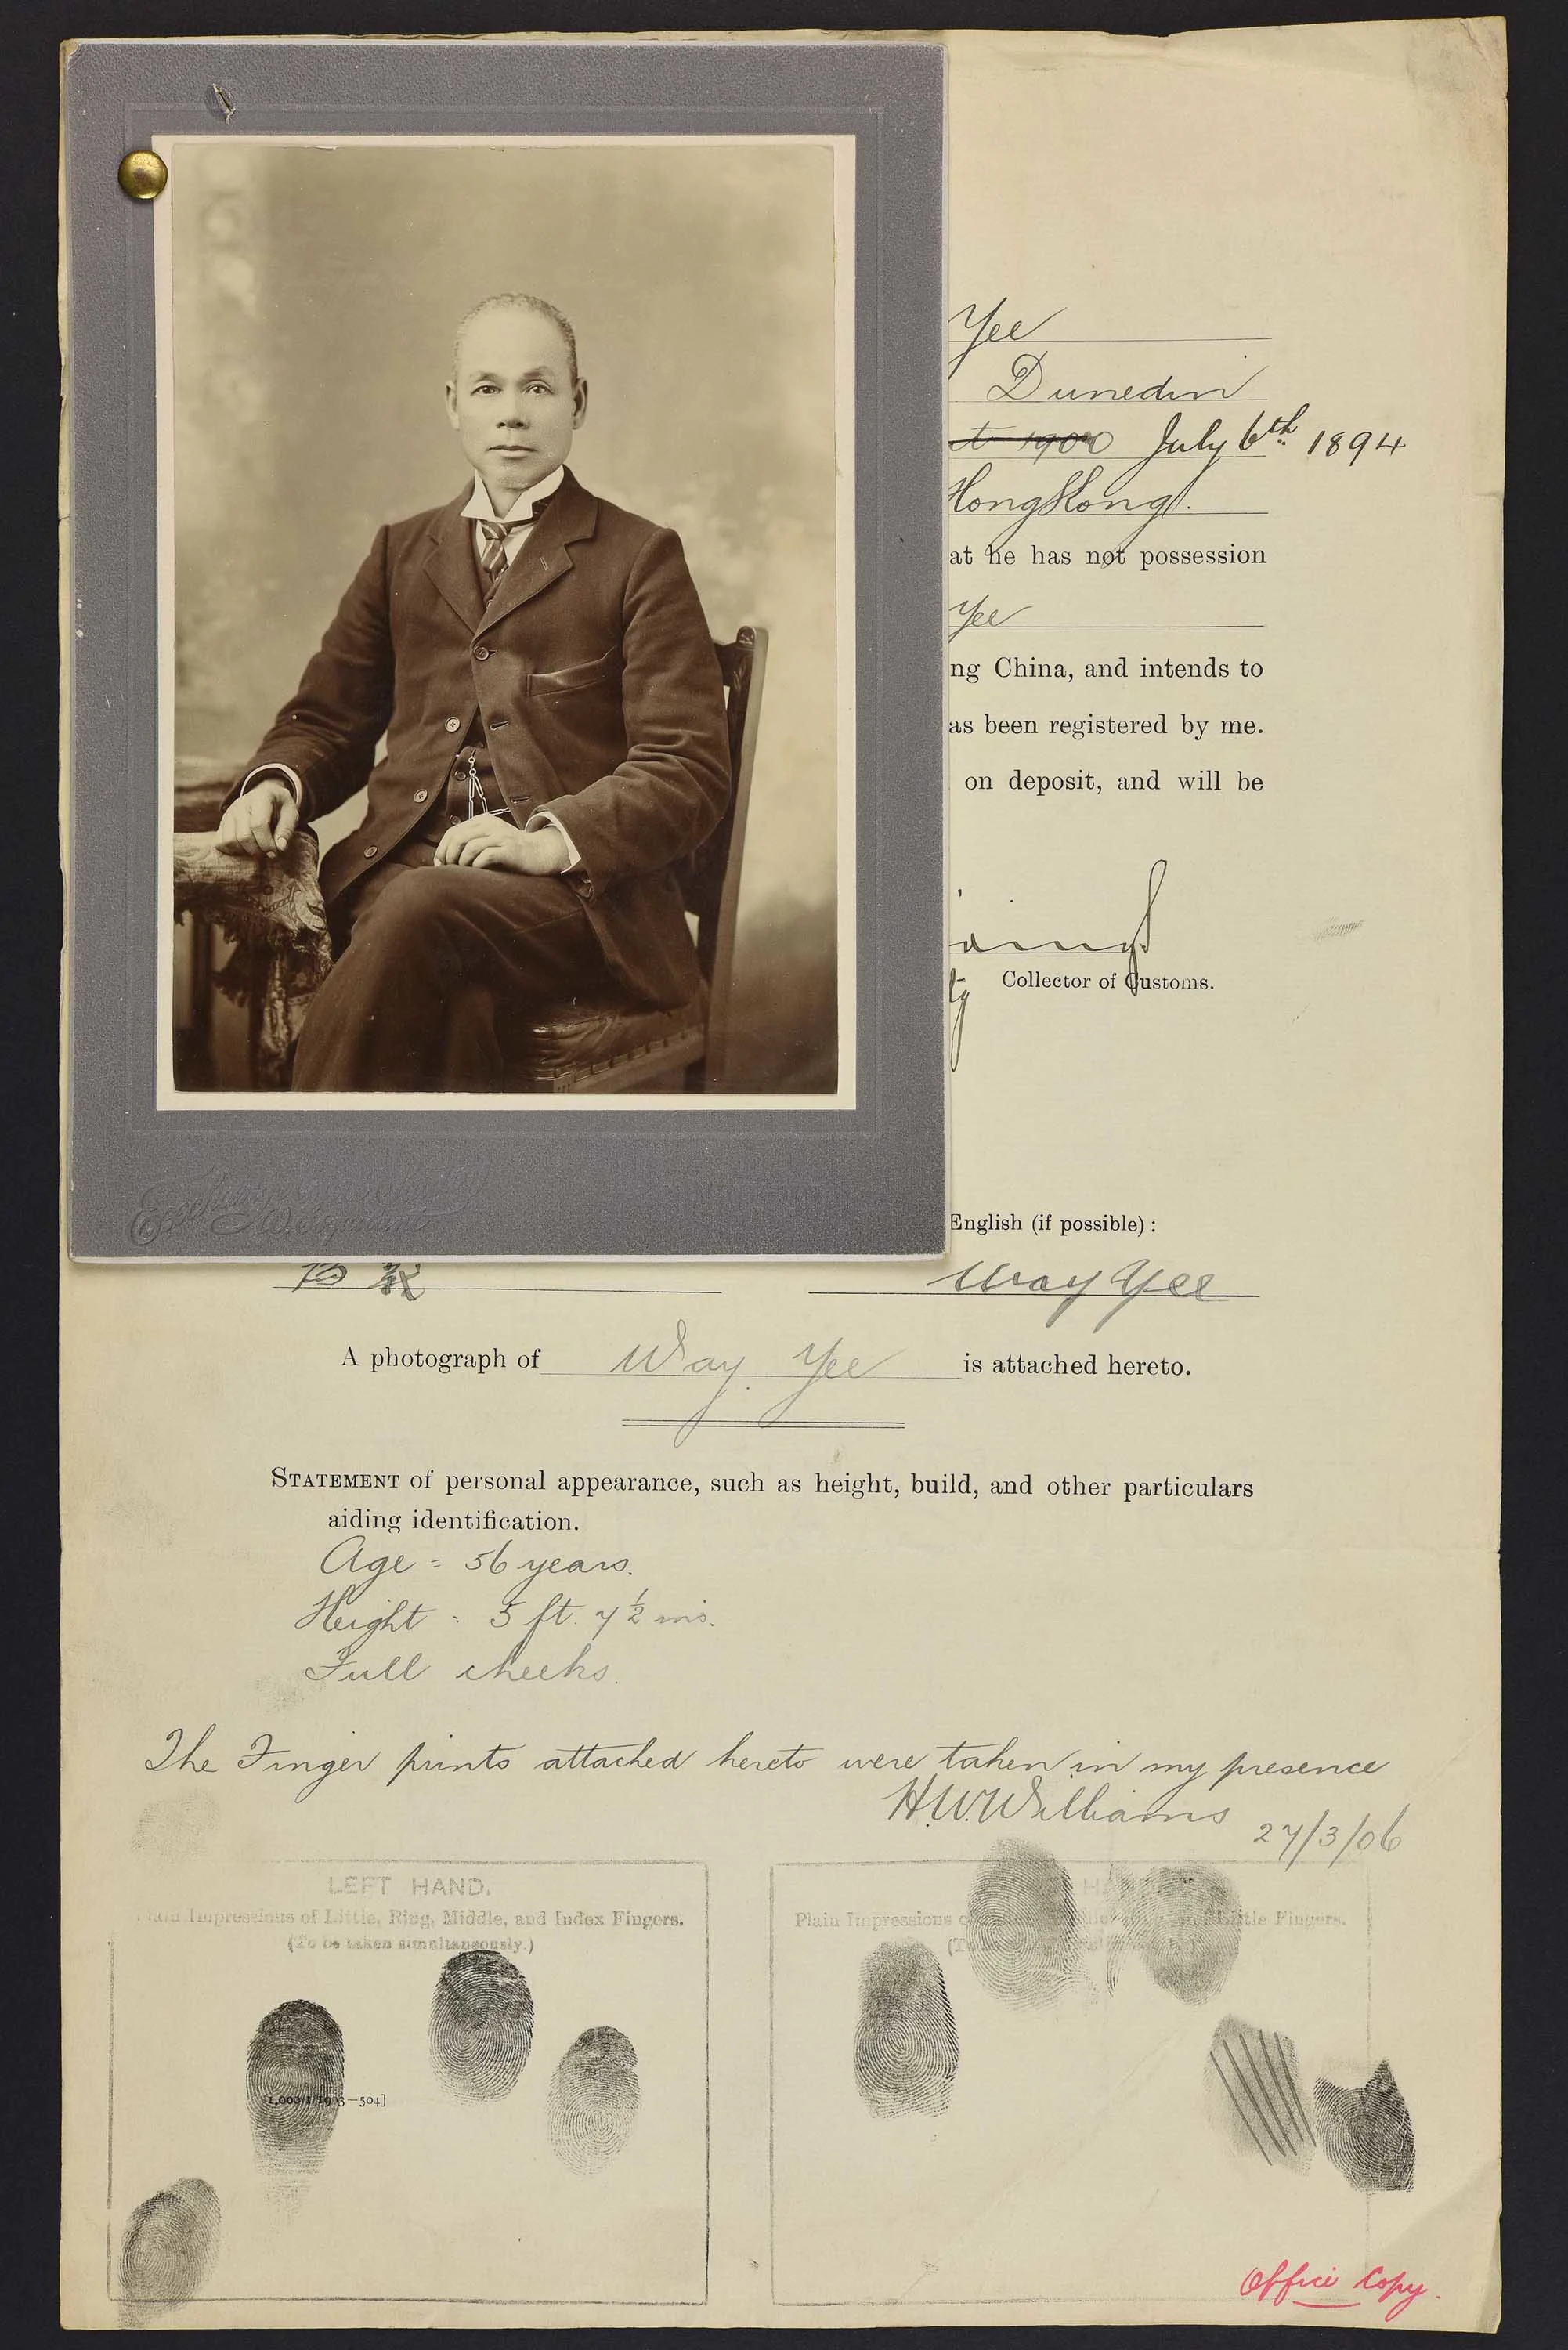 Yee
Dunedin
t 1900 July 6th 1894
HongKong.
at he has not possession
Yee
ng China, and intends to
as been registered by me.
on deposit, and will be
ty Collector of Customs.
English (if possible) :
Way Yee
A photograph of Way Yee is attached hereto.
STATEMENT of personal appearance, such as height, build, and other particulars
aiding identification.
Age = 56 years.
Height = 5 ft. 7 ½ ins.
Full cheeks.
The Finger prints attached hereto were taken in my presence
H.W. Williams 27/3/06
LEFT HAND.
Plain Impressions of Little, Ring, Middle, and Index Fingers.
(To be taken simultaneously.)
Plain Impressions Little Fingers.
1,000 3—504]
Office Copy.